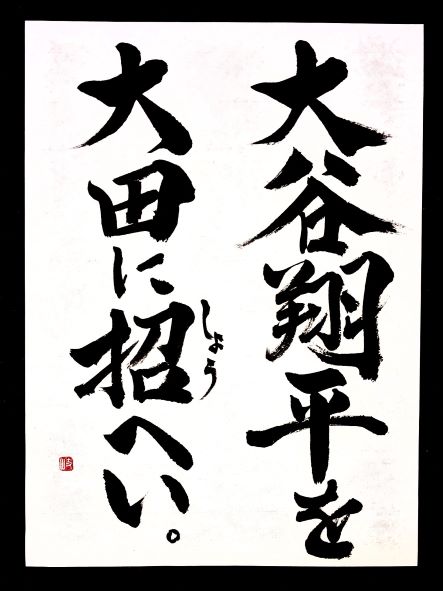 大谷翔平を
大田に招へい。
しょう